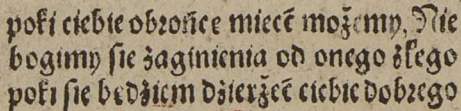 poki ciebie obꝛońce miecẽ możemy, Nie
bogimy ſie żaginienia od onego żłego
poki ſie będżiem dżierżeẽ ciebie dobꝛego